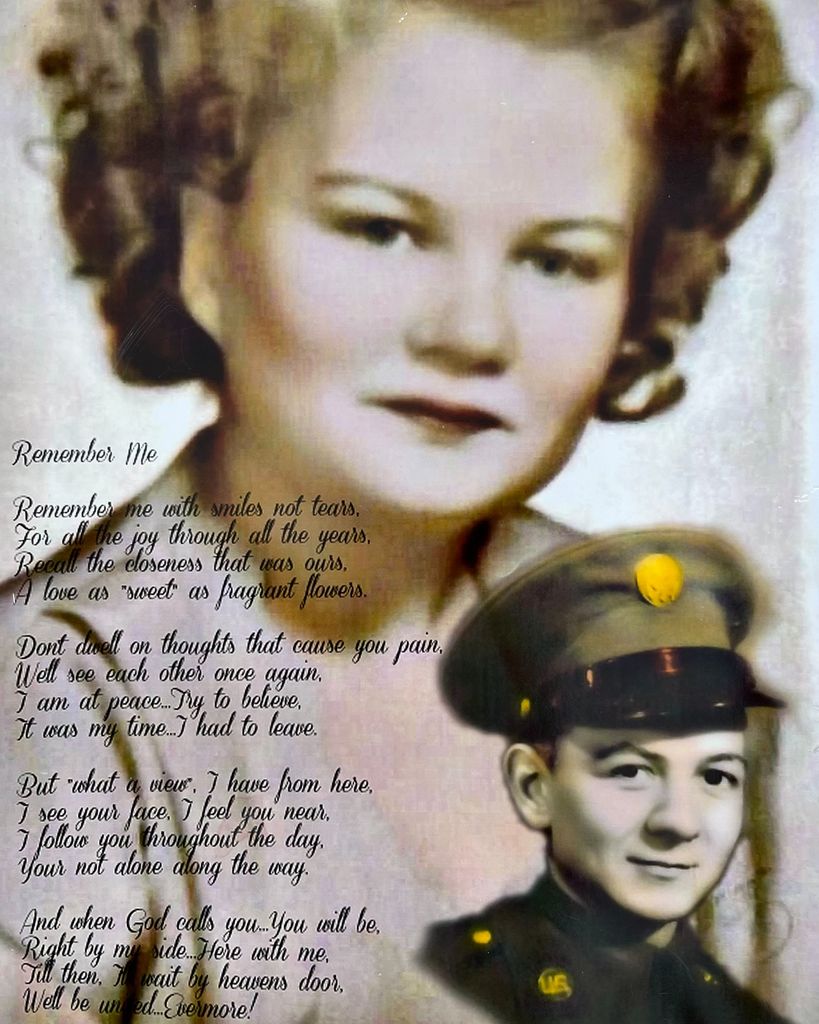 Remember Me
Remember me with smiles not tears,
For all the joy through all the years,
Recall the closeness that was ours,
A love as "sweet" as fragrant flowers.
Dont dwell on thoughts that cause you pain,
Well see each other once again,
I am at peace...Try to believe,
It was my time...I had to leave.
But "what a view", I have from here,
I see your face, I feel you near,
I follow you throughout the day,
Your not alone along the way.
And when God calls you...You will be,
Right by my side...Here with me,
Till then, Ill wait by heavens door,
Well be united...Evermore!
U.S.